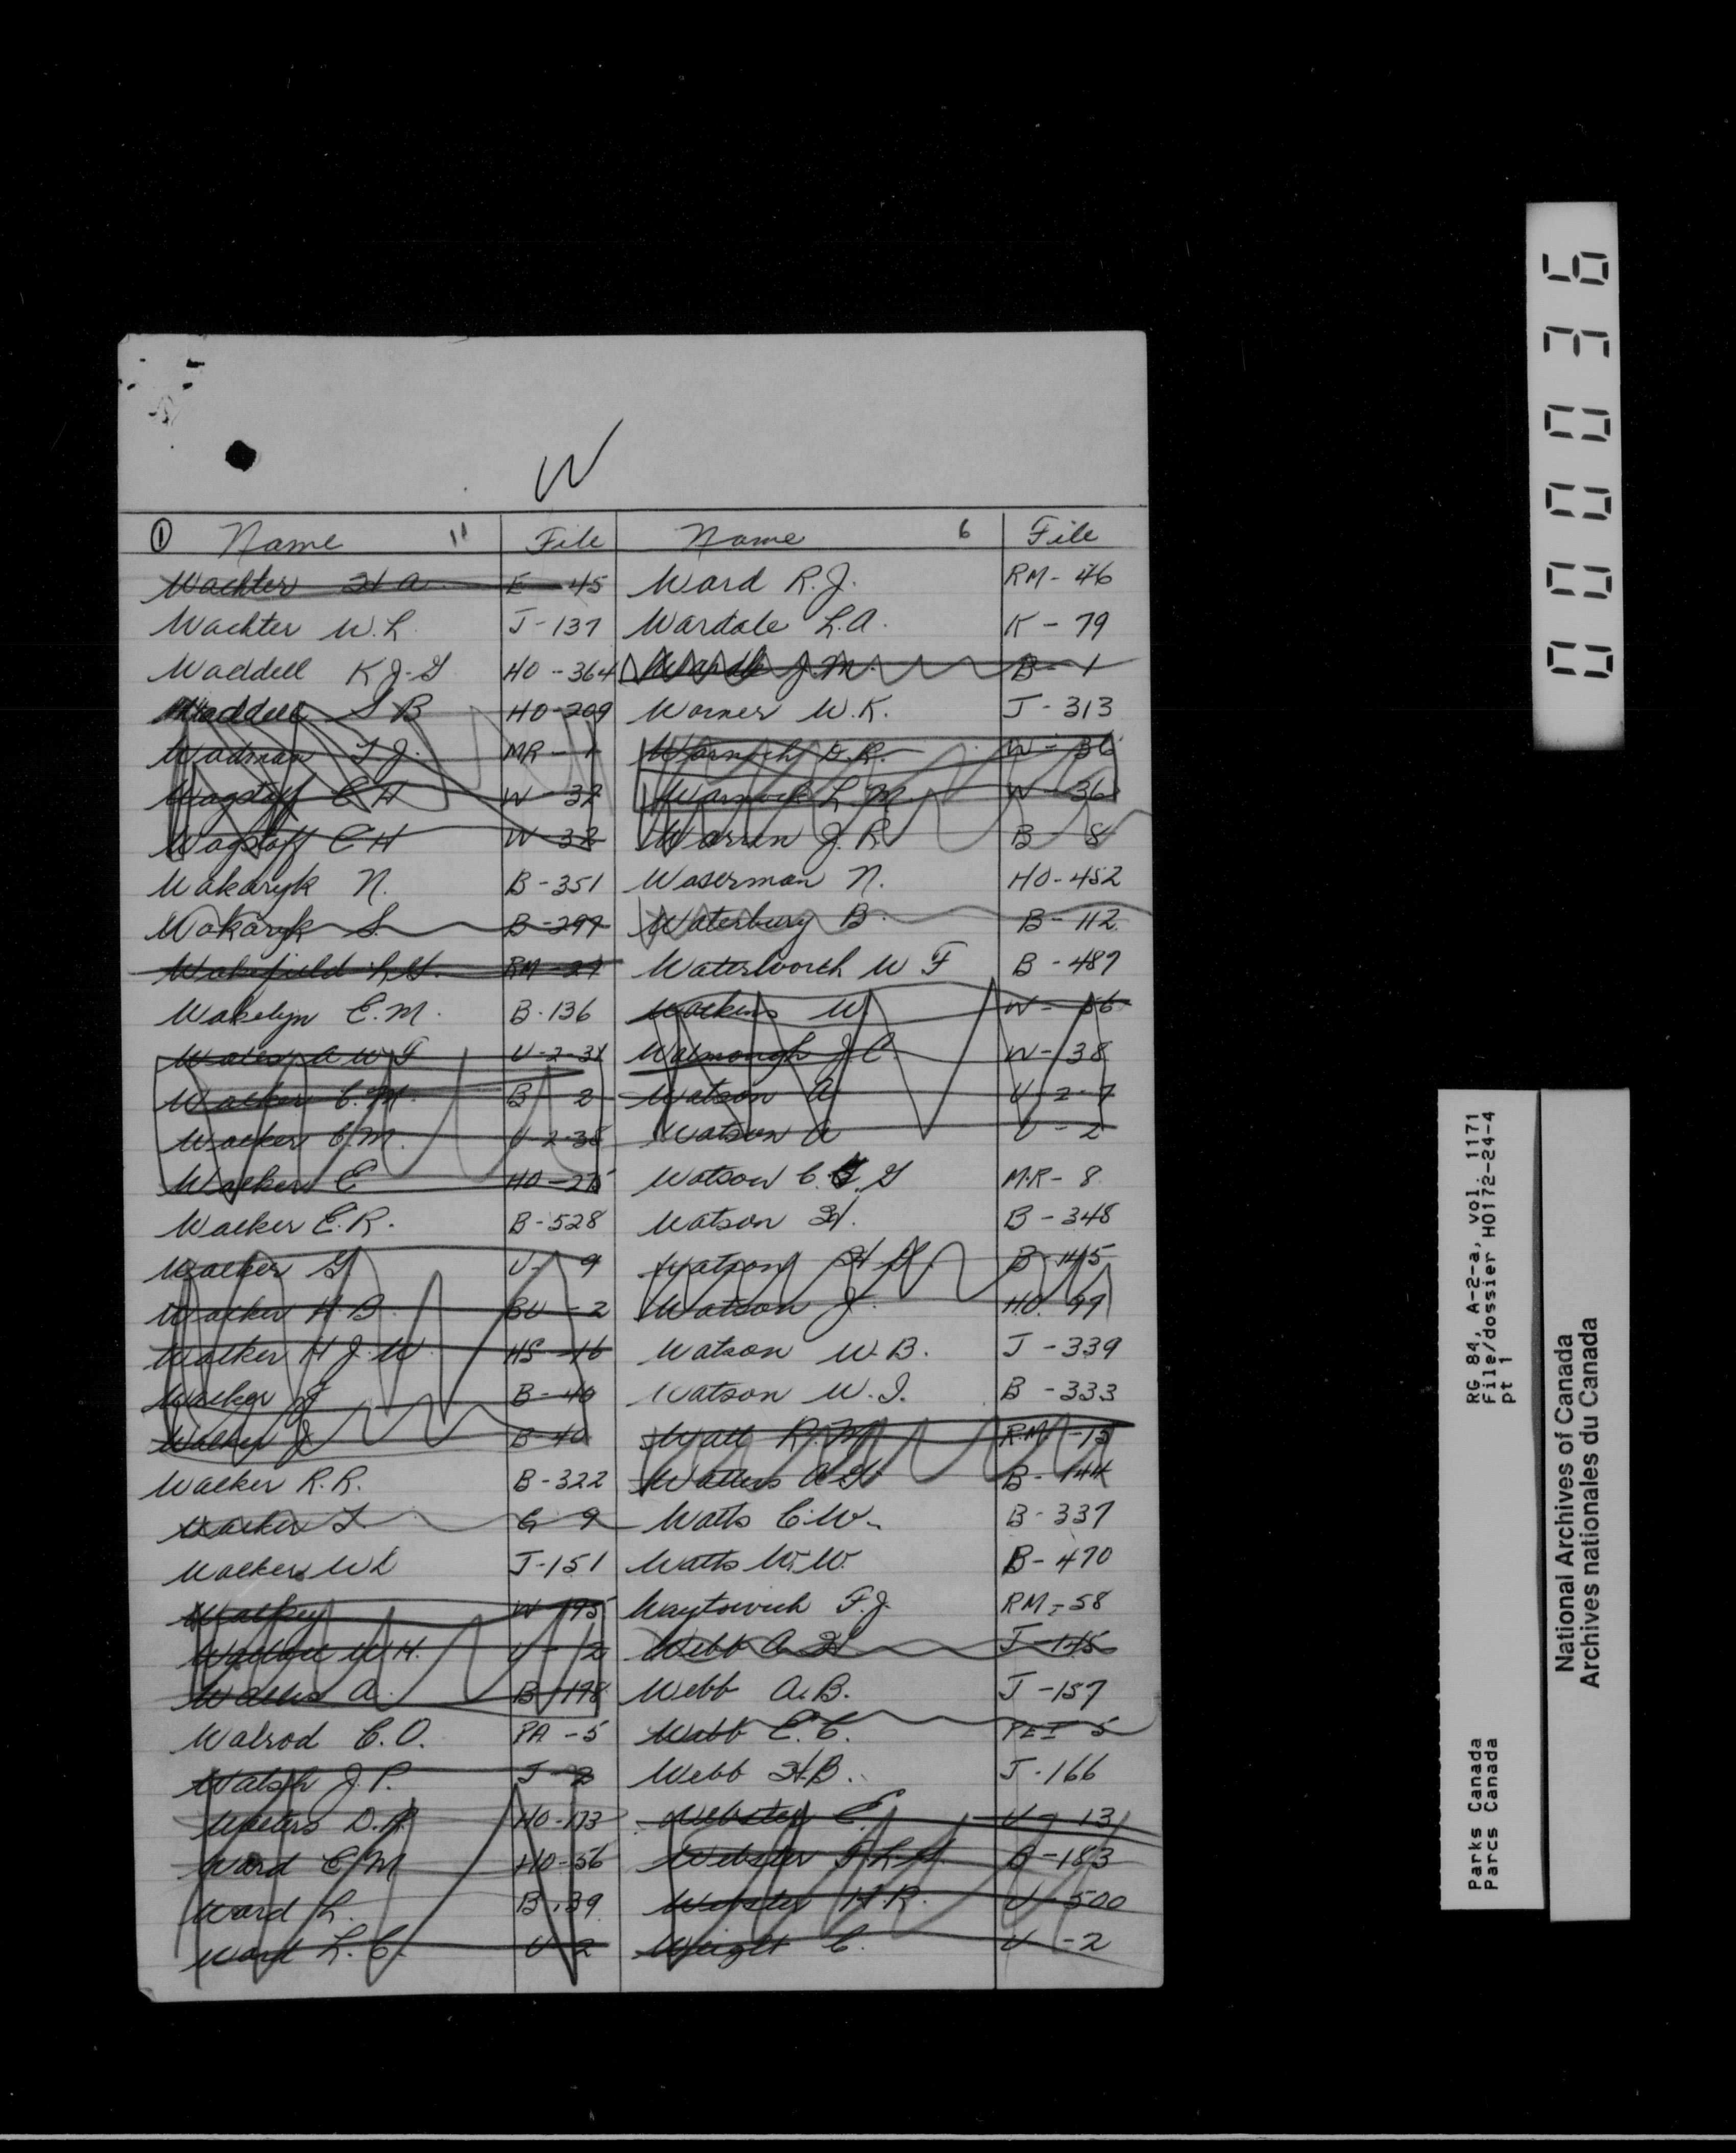 W
① Name 11 File Name 6 File
Wachter H A E - 45 Ward R. J. RM - 46
Wachter W. L. J - 137 Wardale L. A. K - 79
Waddell K J. G HO - 364 Wardle J. M. B - 1
Waddell S B HO - 209 Warner W. K. J - 313
Wadman T J. MR - 1 Warnock D. R. W - 36
Wagstaff C H W - 32 Warnock L. M. W - 36
Wagstaff C H W - 32 Warren J. R. B - 8
Wakaryk N. B - 351 Waserman N. HO - 452
Wakaryk S. B - 297 Waterbury B. B - 112
Wakefield L. G. RM - 27 Waterworth W F B - 487
Wakelyn E. M. B. 136 Watkins W.
Wales A W F U - 2 - 31 Watmough J C W - 38
Walker C. M. B - 2 Watson A U - 2 - 7
Walker C. M. U - 2 - 38 Watson A U - 2
Walker E HO - 275 Watson C. G M.R - 8
Walker E. R. B - 528 Watson H. B - 348
Walker G U - 9 Watson H. B - 145
Walker H. B. BU - 2 Watson J. HO. 99
Walker H J. W. HS - 16 Watson W. B. J - 339
Walker J B - 40 Watson W. I. B - 333
Walker J B - 40 Watt R. M R.M - 15
Walker R. R. B - 322 Watters A B - 144
Walker T. G 9 Watts C. W. B - 337
Walker W L J - 151 Watts W. W. B - 470
Walkey W - 195 Waytowich F. J. RM - 58
Wallace W. H. U - 2 Webb A H J - 145
Wallis A. B - 198 Webb A. B. J - 157
Walrod C. O. PA - 5 Webb E. C. PEI 5
Walsh J. P. J - 2 Webb H. B. J - 166
Walters D. R HO - 173 Webster E. U - 13
Ward C M HO - 56 Webster F. L. B - 183
Ward L. B. 39 Webster H. R. U - 500
Ward L. C. U - 2 Weight C. U - 2
000036
RG 84, A-2-a, vol. 1171
File/dossier H0172-24-4
pt 1
Parks Canada
Parcs Canada
National Archives of Canada
Archives nationales du Canada